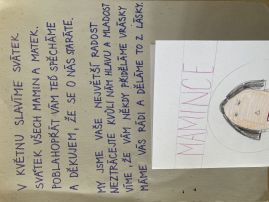 V KVĚTNU SLAVÍME SVÁTEK.
SVÁTEK VŠECH MAMIN A MATEK.
POBLAHOPŘÁT VÁM TEĎ SPĚCHÁME
A DĚKUJEM, ŽE SE O NÁS STARÁTE.
MY JSME VAŠE NEJVĚTŠÍ RADOST
NEZTRÁCEJTE KVŮLI NÁM HLAVU A MLADOST
VÍME, ŽE VÁM NĚKDY PŘIDĚLÁME VRÁSKY
MÁME VÁS RÁDI A DĚLÁME TO Z LÁSKY.
MAMINCE